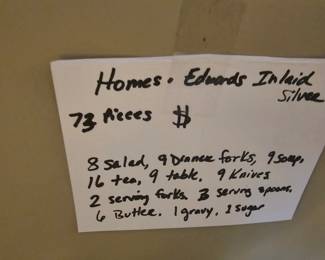 Homes. Edwards Inlaid
Silver
73 Pieces $
8 Salad, 9 Dinner forks, 9 Soup,
16 tea, 9 table, 9 Knives
2 serving forks. 3 serving spoons,
6 Butter. 1 gravy, 1 sugar